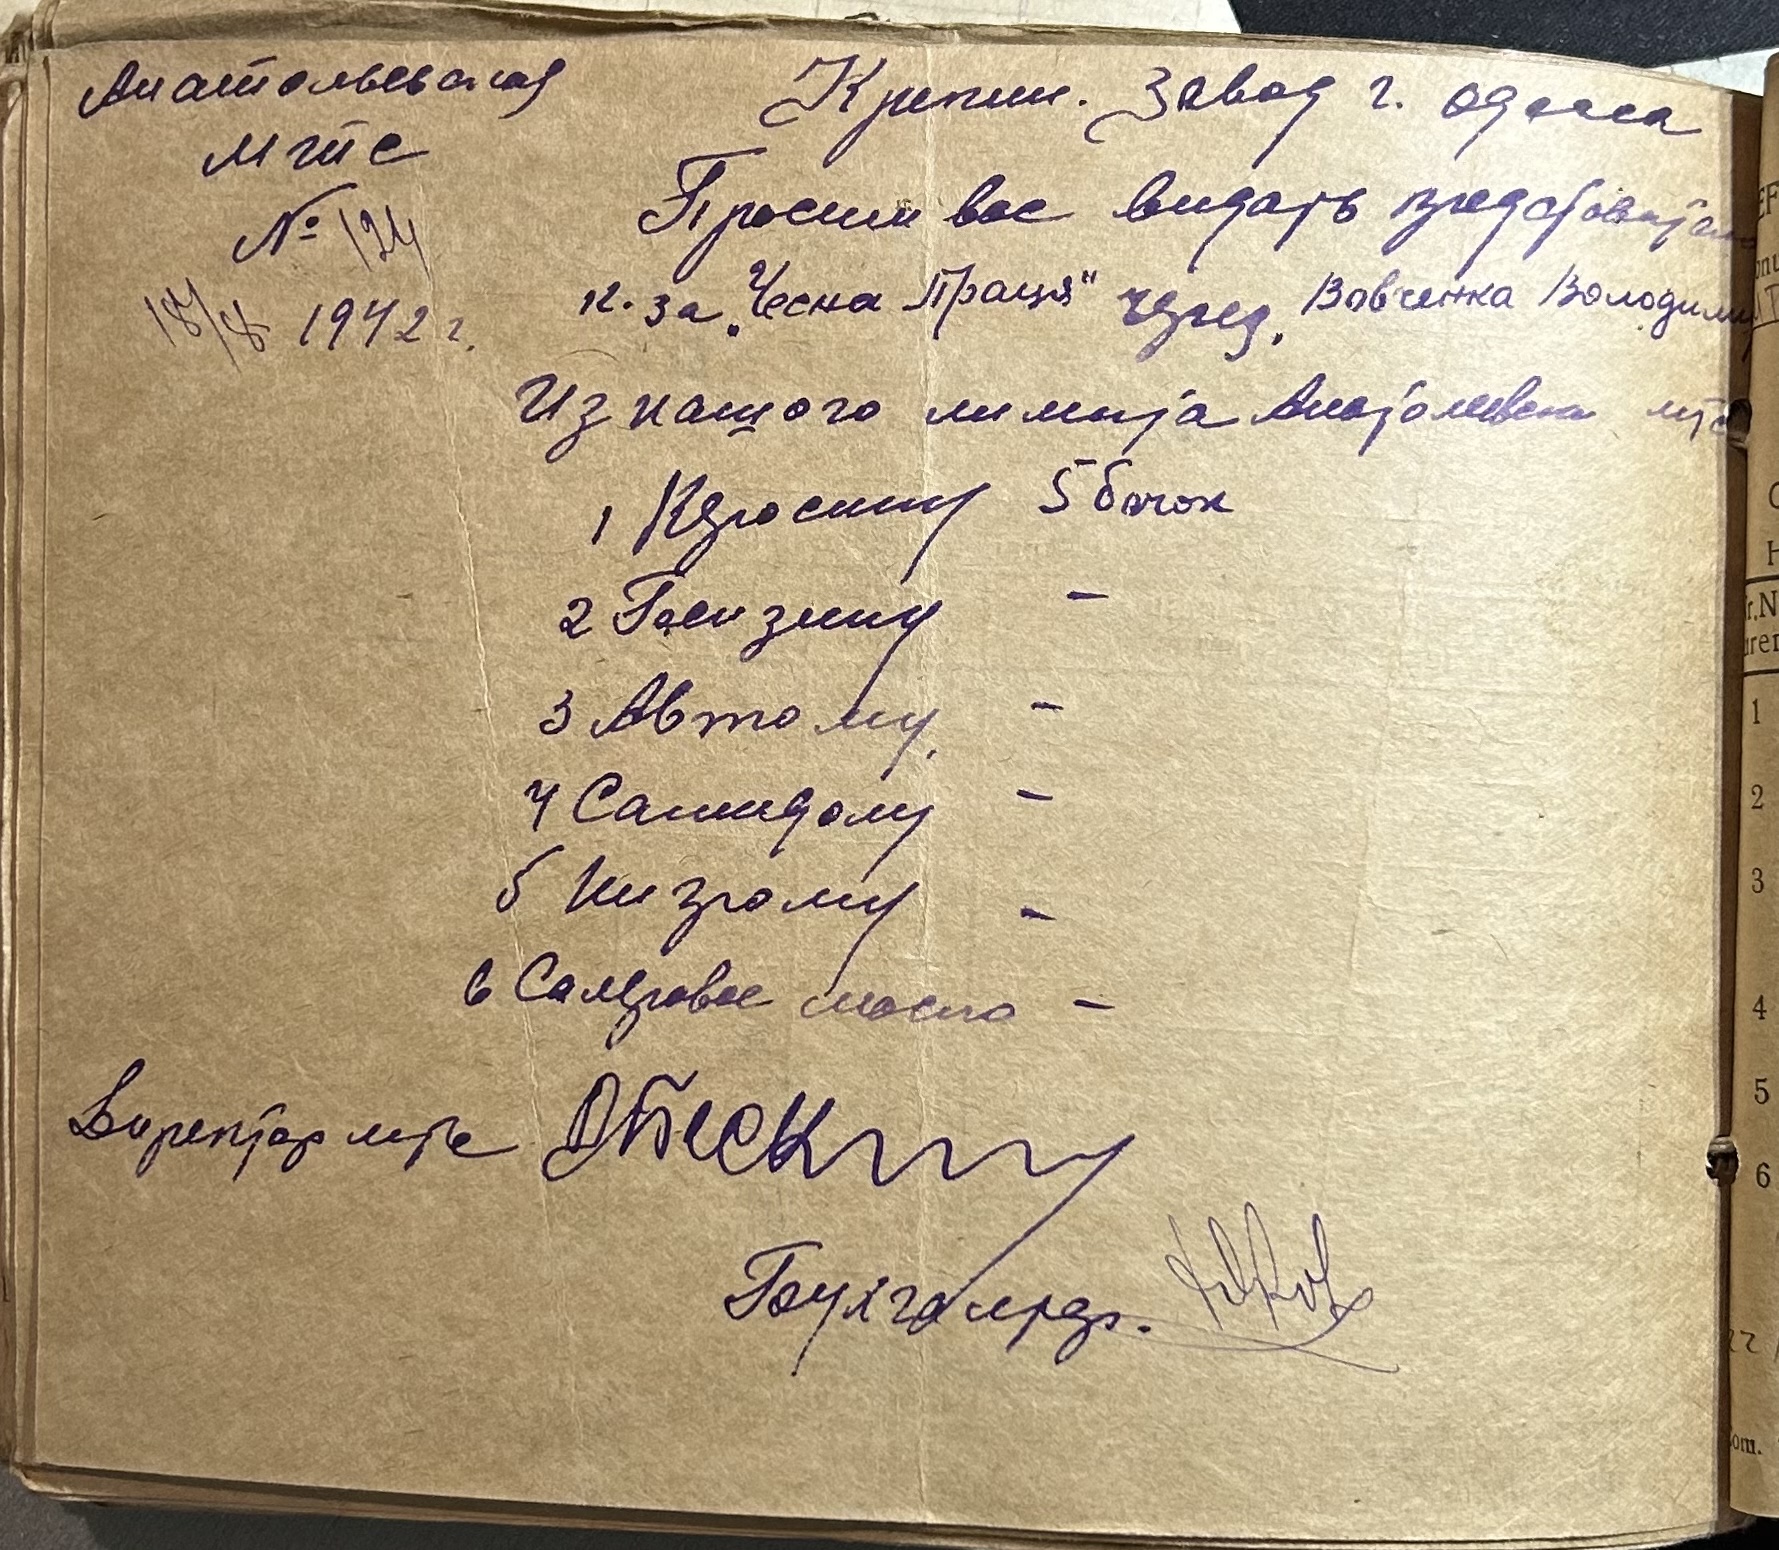 Анатольевская
МТС
№ 124
18/8 1942 г.
Крекин. Завод г. Одесса
Просим вас видать представителю
к-за „Чесна Праця" через. Вовченка Володими
Из нашого лимита Анатолиевска мтс
1 Керосину 5 бочок
2 Бензину -
3 Автолу. -
4 Салидолу -
5 Нигролу -
6 Салеровое масло -
Директор мтс
Бухгалтер.
EF
1
2
3
4
5
6